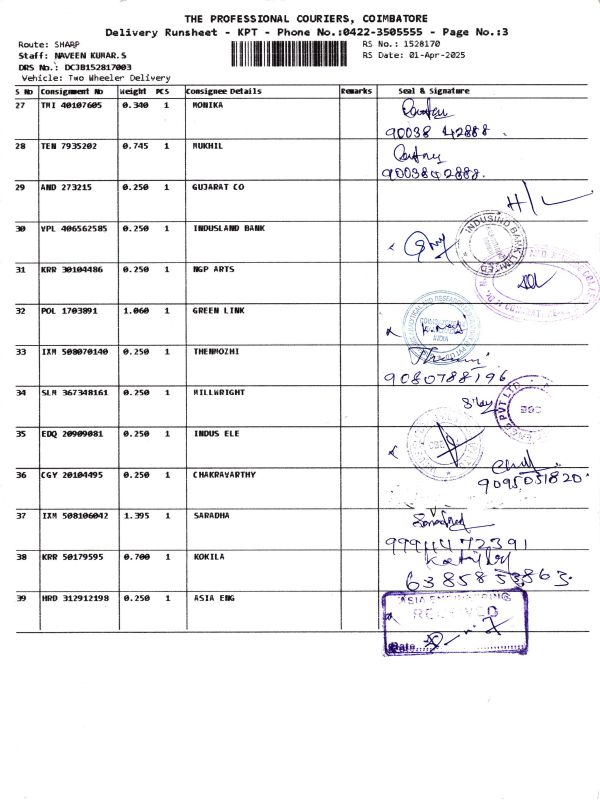 THE PROFESSIONAL COURIERS, COIMBATORE
Delivery Runsheet - KPT - Phone No.:0422-3505555 - Page No.:3
Route: SHARP
RS No.: 1528170
Staff: NAVEEN KUMAR.S
RS Date: 01-Apr-2025
DRS No.: DCJB152817003
Vehicle: Two Wheeler Delivery
S No Consignment No Weight PCS Consignee Details Remarks Seal & Signature
27 TMI 40107605 0.340 1 MONIKA
90038 42888.
28 TEN 7935202 0.745 1 MUKHIL
9003842888.
29 AND 273215 0.250 1 GUJARAT CO
30 VPL 406562585 0.250 1 INDUSLAND BANK
INDUSIND BANK LIMITED
31 KRR 30104486 0.250 1 NGP ARTS
32 POL 1703891 1.060 1 GREEN LINK
33 IXM 508070140 0.250 1 THENMOZHI
9080788196
34 SLM 367348161 0.250 1 MILLWRIGHT
PVT LTD
35 EDQ 20909081 0.250 1 INDUS ELE
36 CGY 20104495 0.250 1 CHAKRAVARTHY
9095051820.
37 IXM 508106042 1.395 1 SARADHA
38 KRR 50179595 0.700 1 KOKILA
39 HRD 312912198 0.250 1 ASIA ENG
ASIA ENGINEERING
RECEIVED
Date